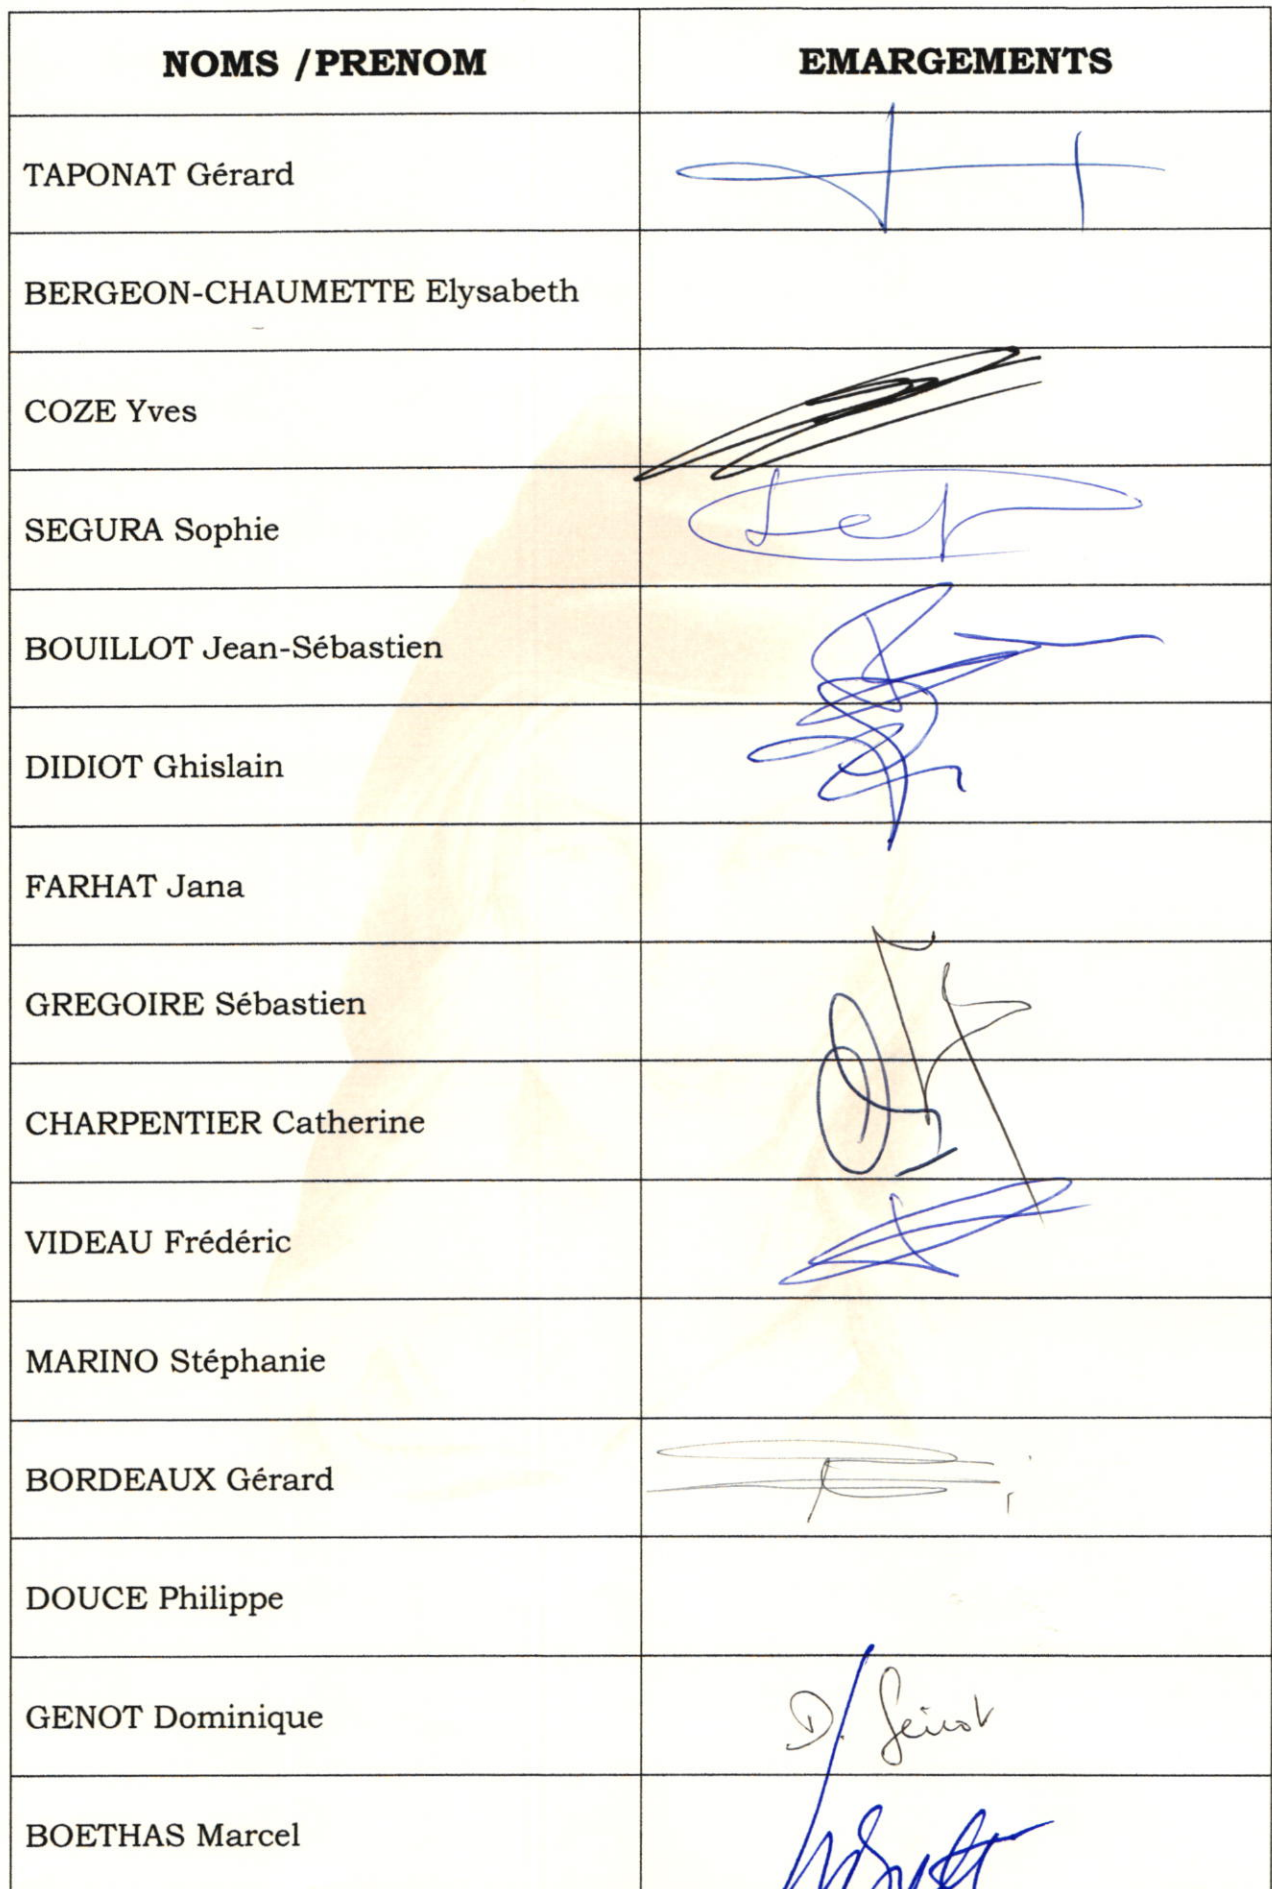 NOMS /PRENOM EMARGEMENTS
TAPONAT Gérard
BERGEON-CHAUMETTE Elysabeth
COZE Yves
SEGURA Sophie
BOUILLOT Jean-Sébastien
DIDIOT Ghislain
FARHAT Jana
GREGOIRE Sébastien
CHARPENTIER Catherine
VIDEAU Frédéric
MARINO Stéphanie
BORDEAUX Gérard
DOUCE Philippe
GENOT Dominique D. Genot
BOETHAS Marcel